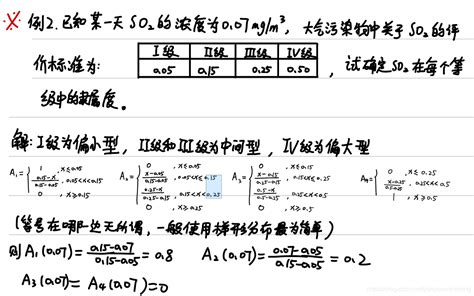 ※ 例2.已知某一天SO₂的浓度为0.07mg/m³,大气污染物中关于SO₂的评
价标准为: I级 II级 III级 IV级 ,试确定SO₂在每个等
0.05 0.15 0.25 0.50
级中的隶属度。
解: I级为偏小型, II级和III级为中间型, IV级为偏大型
A₁={ 1 , x≤0.05
(0.15-x)/(0.15-0.05) , 0.05<x≤0.15
0 , x≥0.15
A₂={ 0 , x≤0.05
(x-0.05)/(0.15-0.05) , 0.05<x≤0.15
(0.25-x)/(0.25-0.15) , 0.15<x<0.25
0 , x≥0.25
A₃={ 0 , x≤0.15
(x-0.15)/(0.25-0.15) , 0.15<x≤0.25
(0.5-x)/(0.5-0.25) , 0.25<x<0.5
0 , x≥0.5
A₄={ 0 , x≤0.25
(x-0.25)/(0.5-0.25) , 0.25<x<0.5
1 , x≥0.5
(等号在哪一边无所谓,一般使用梯形分布最为简单)
则A₁(0.07)=(0.15-0.07)/(0.15-0.05)=0.8 A₂(0.07)=(0.07-0.05)/(0.15-0.05)=0.2
A₃(0.07)=A₄(0.07)=0